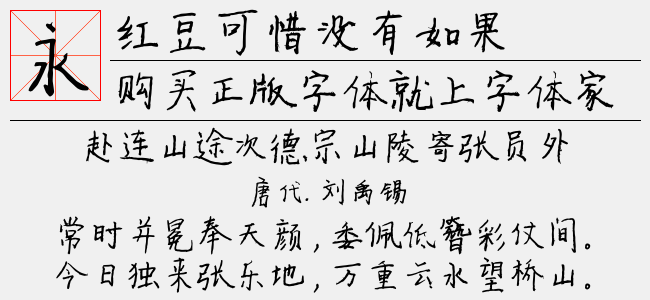 永
红豆可惜没有如果
购买正版字体就上字体家
赴连山途次德宗山陵寄张员外
唐代.刘禹锡
常时并冕奉天颜,委佩低簪彩仗间。
今日独来张乐地,万重云水望桥山。